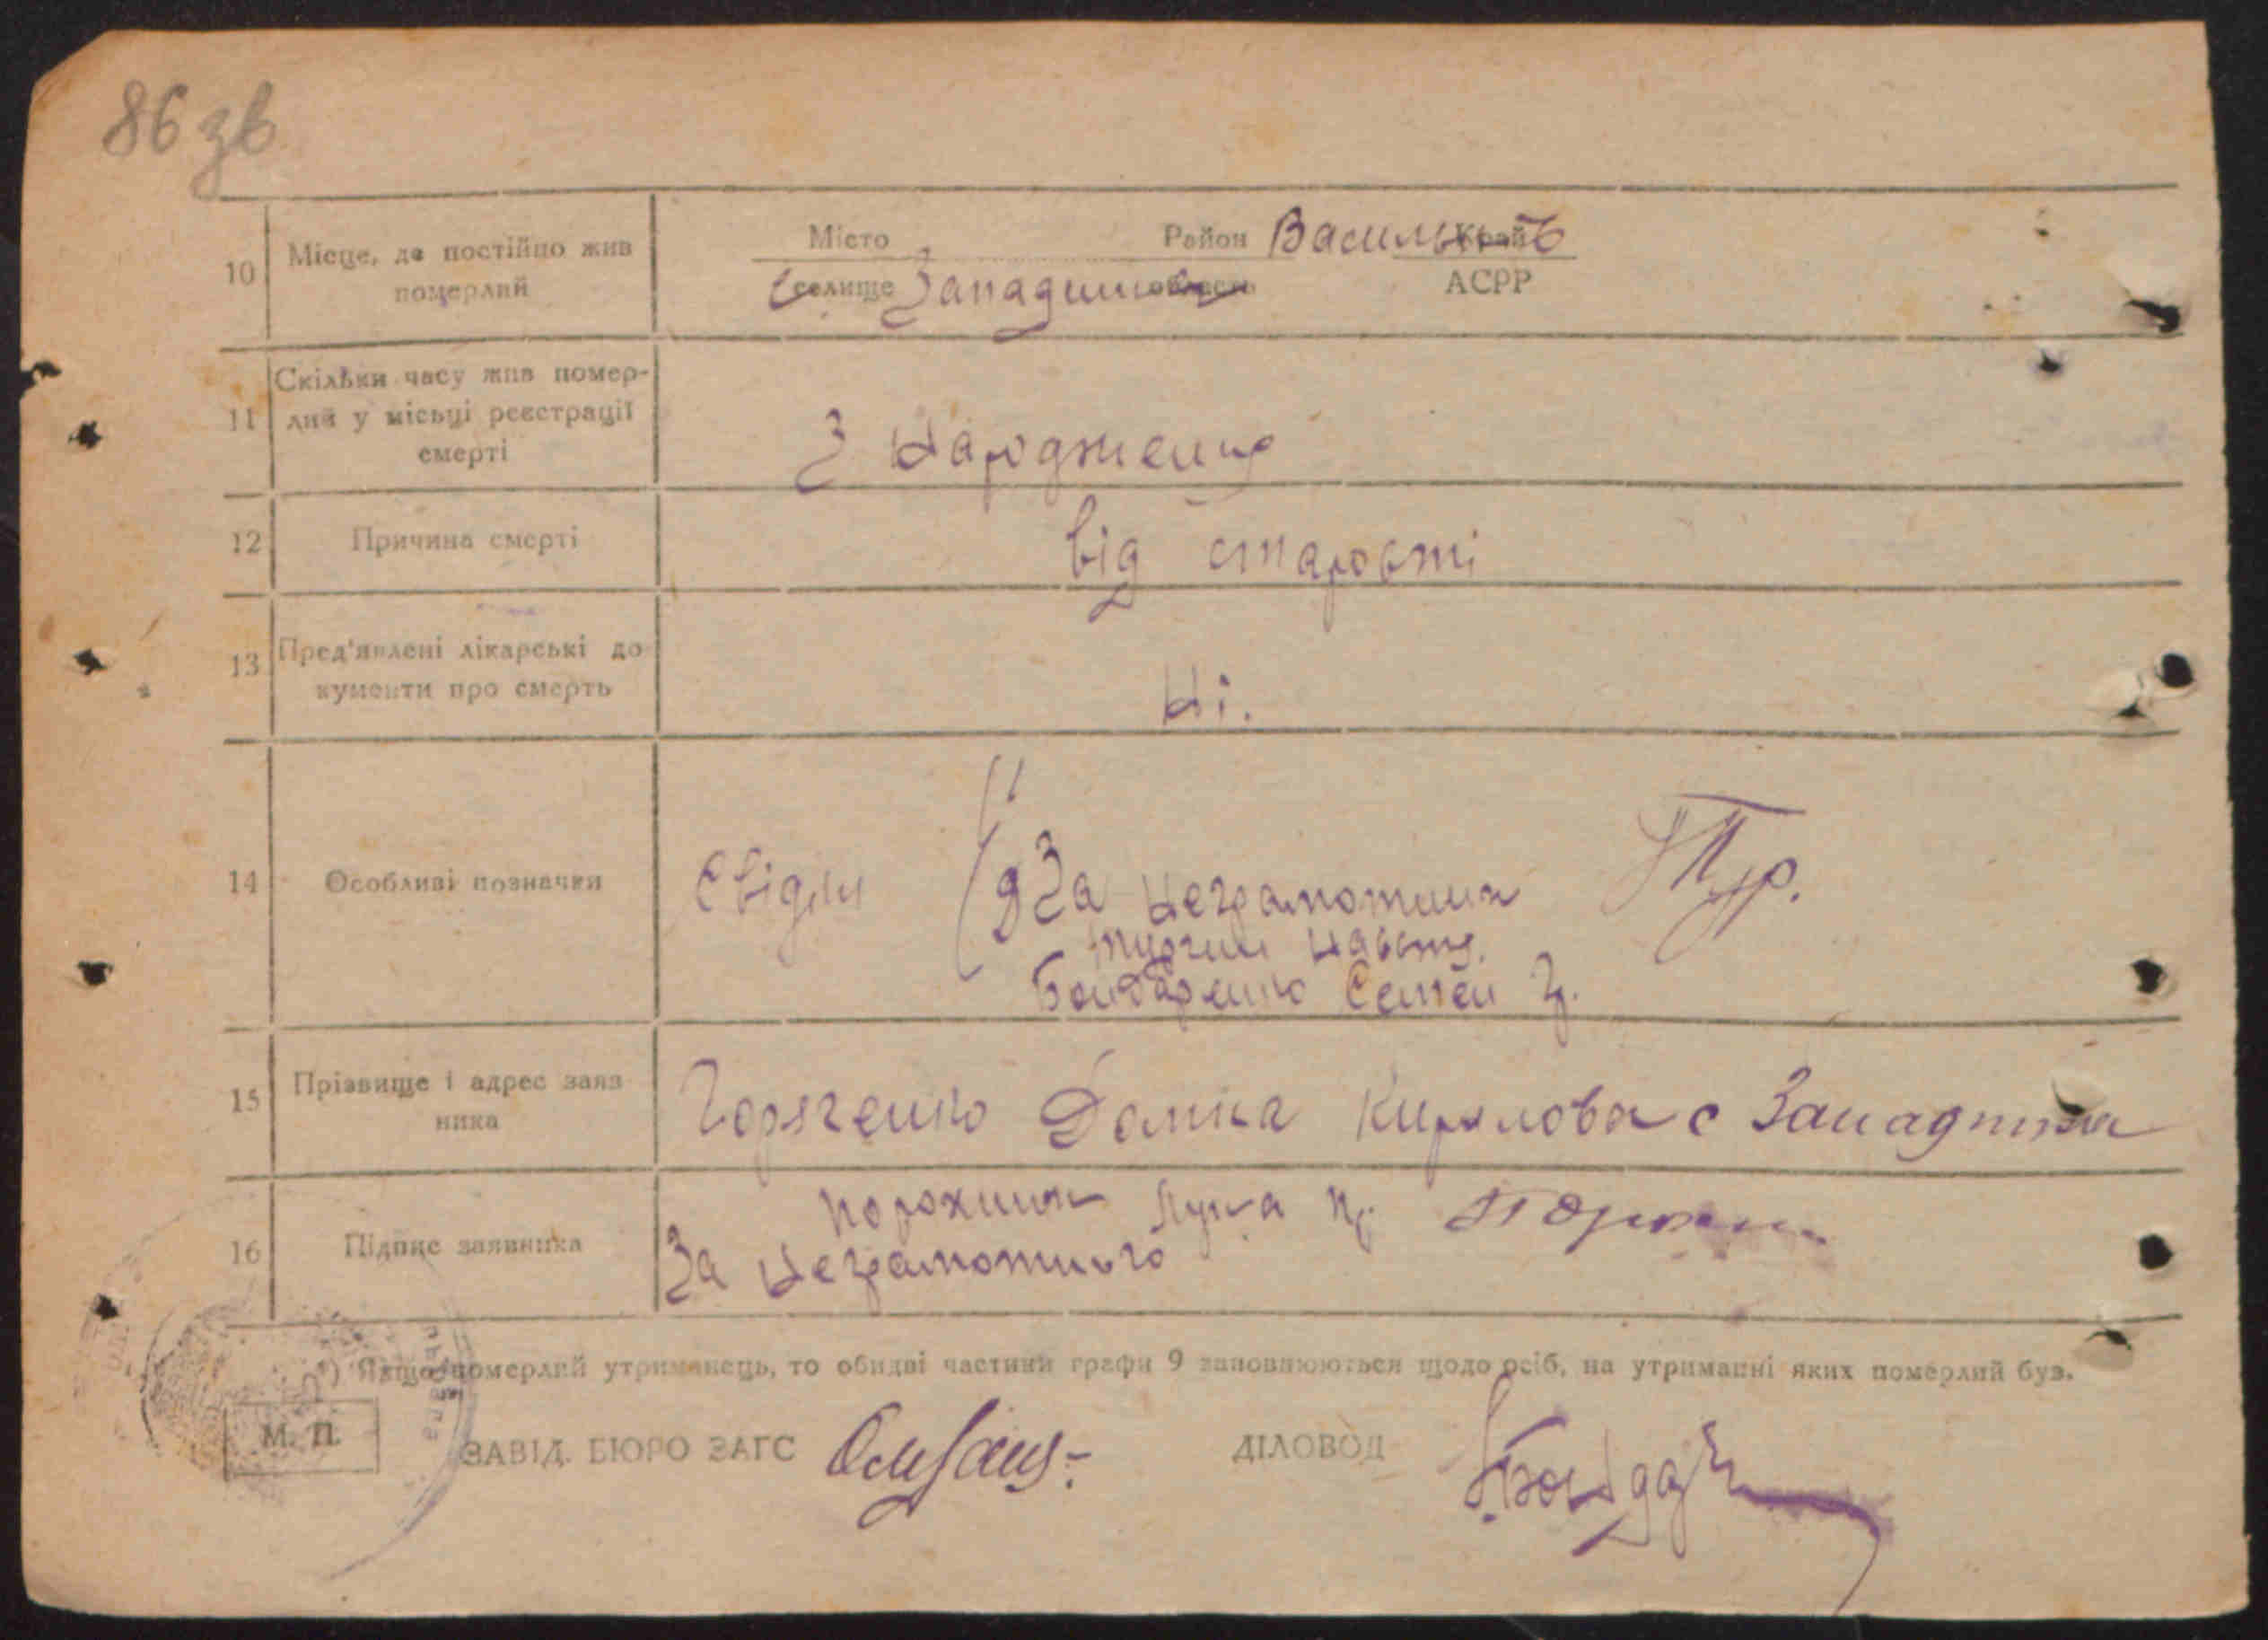 86 зв
10 Місце, де постійно жив померлий
Місто Район Васильків Край
с. селище Западинка область АСРР
11 Скільки часу жив помер-
лий у місьці реєстрації
смерті
З народження
12 Причина смерті
від старости
13 Пред'явлені лікарські до
кументи про смерть
Ні.
14 Особливі позначки
Свідки
За неграмотних
Бондаренко Семен
15 Прізвище і адрес заяв
ника
Горяченко Домка Кирилова с Западинка
16 Підпис заявника
Порохнюк Лука
За неграмотного
¹) Якщо померлий утриманець, то обидві частини графи 9 заповнюються щодо осіб, на утриманні яких померлий був.
М. П.
ЗАВІД. БЮРО ЗАГС
ДІЛОВОД